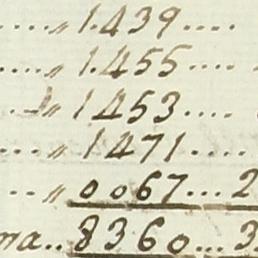 ....〃 1.439....
....〃 1.455....
....〃 1453....
....〃 1471....
...〃 0067...2
ma..8360...3